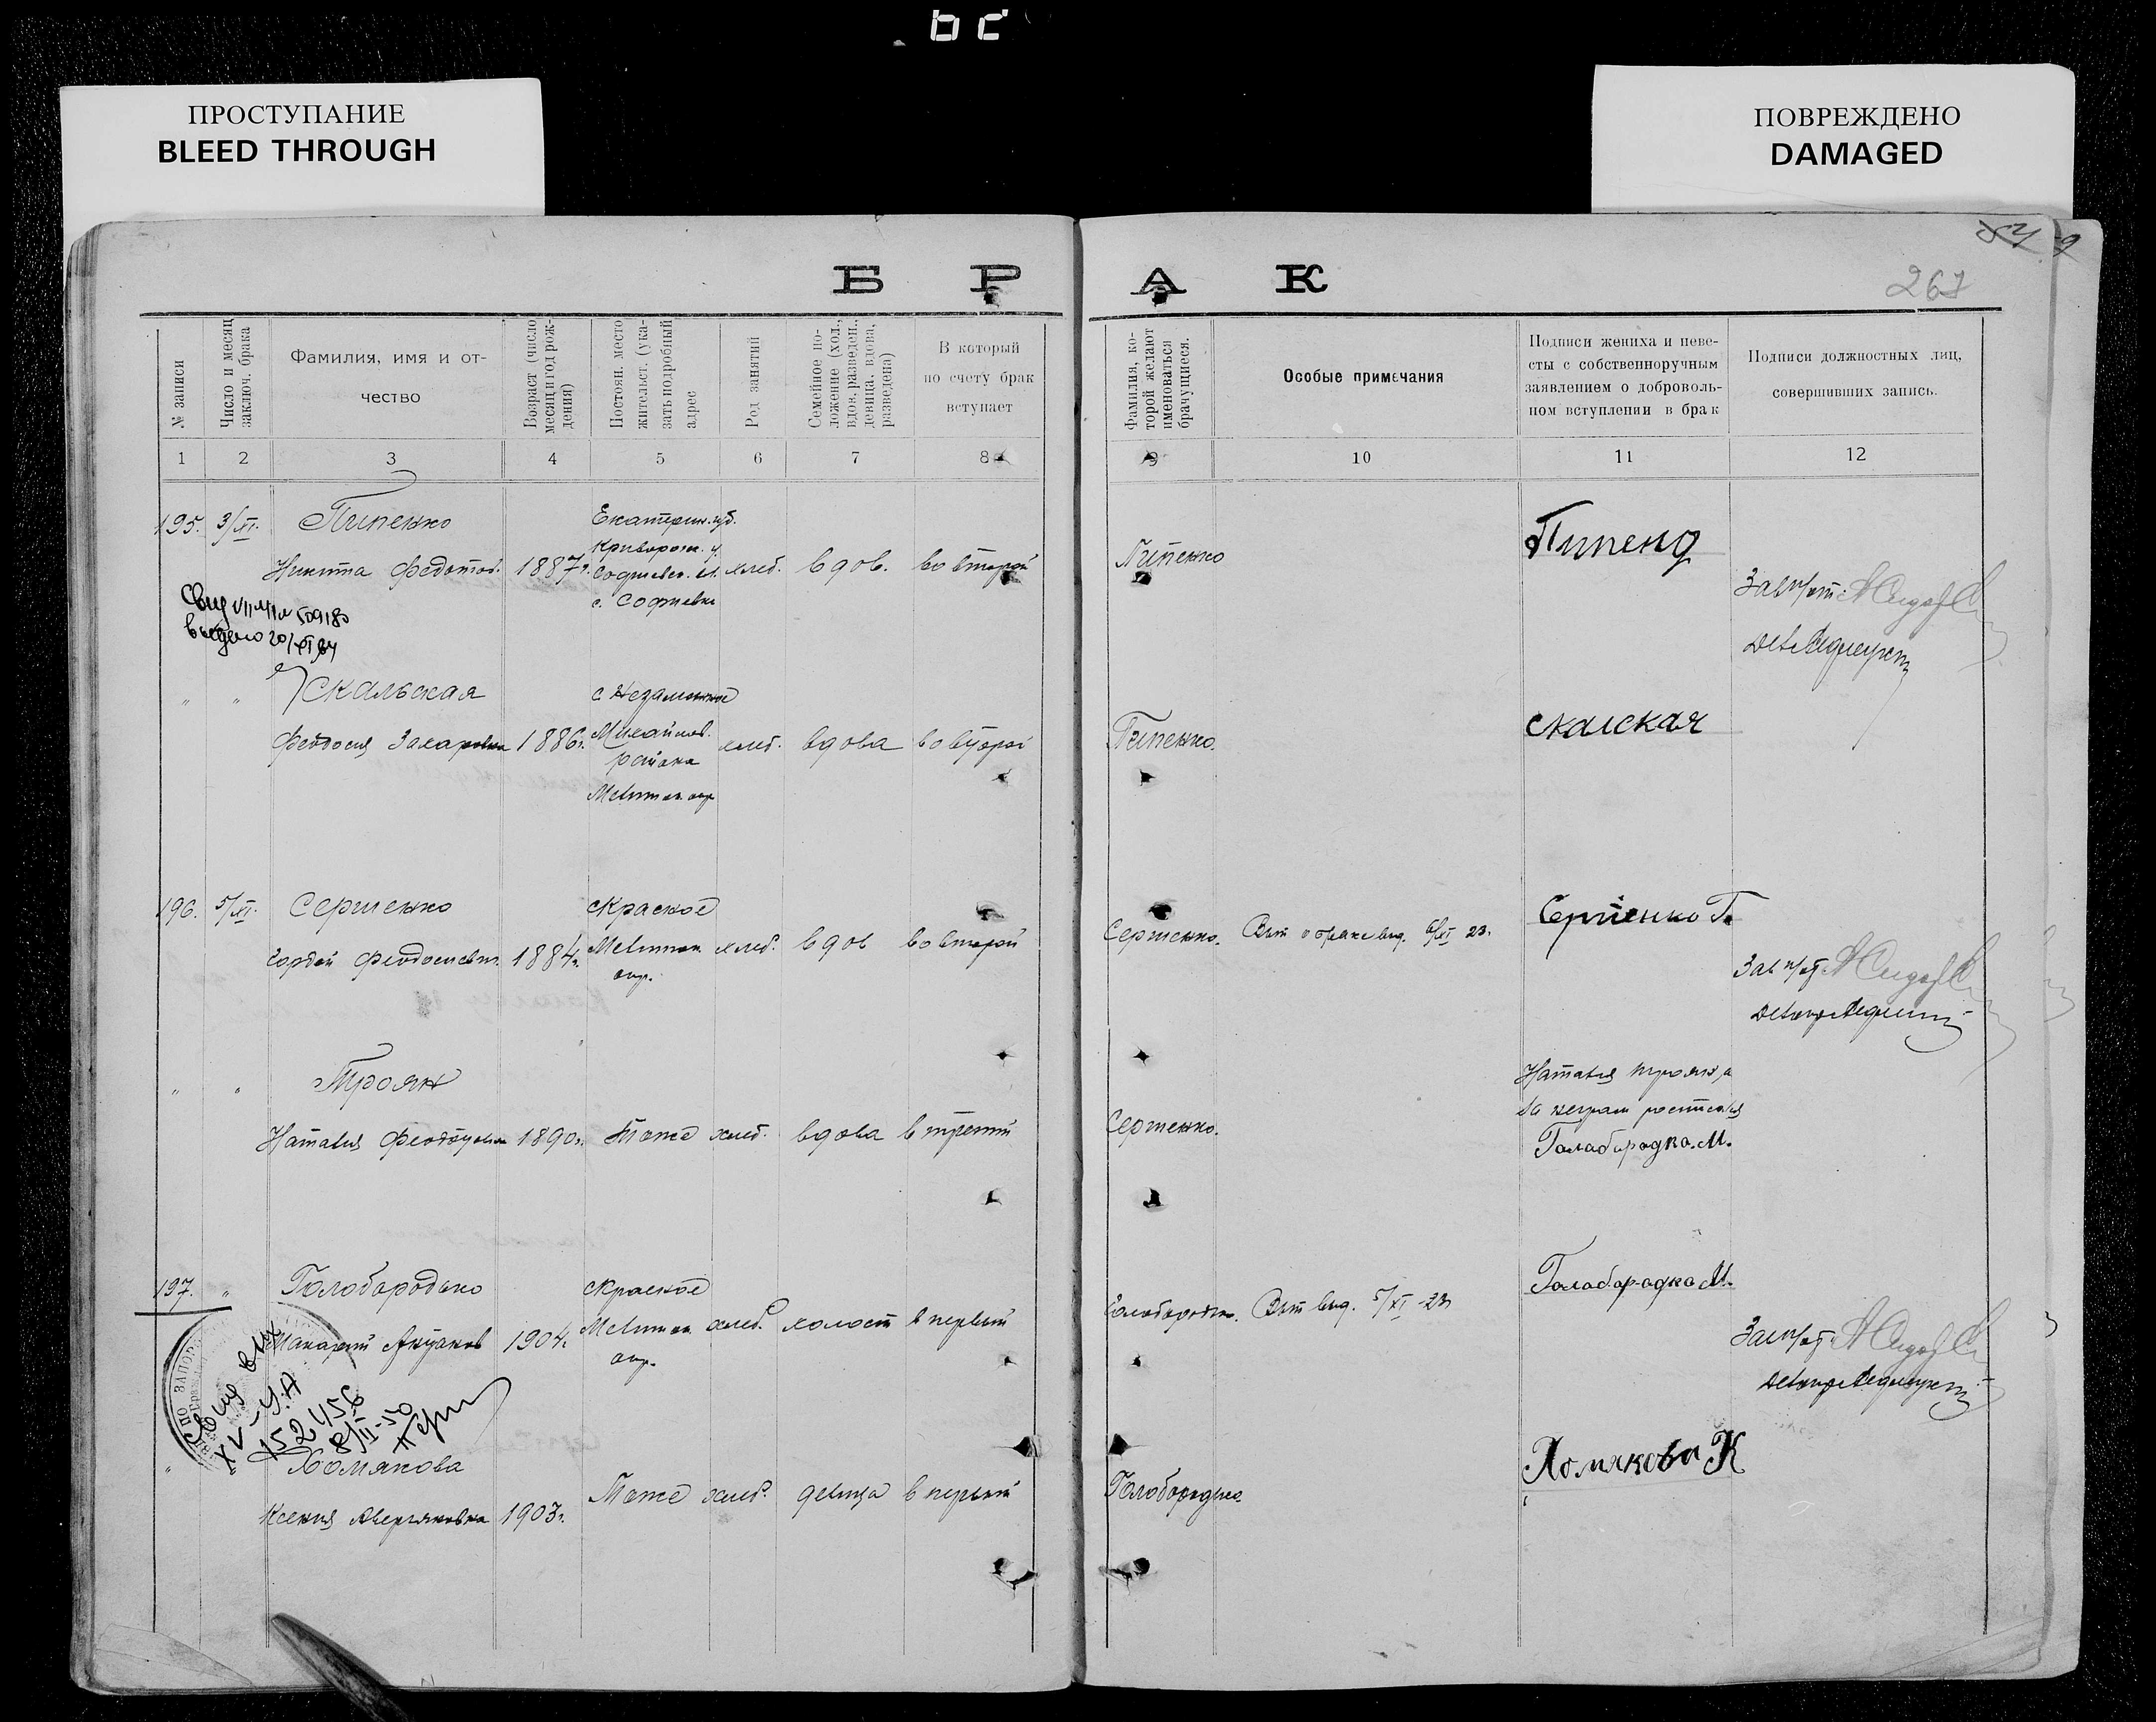 ПРОСТУПАНИЕ
BLEED THROUGH
ПОВРЕЖДЕНО
DAMAGED
БРАК
267
№ записи
Число и месяц заключ. брака
Фамилия, имя и от-
чество
Возраст (число месяц и год рож-
дения)
Постоян. место жительст. (ука-
зать подробный адрес
Род занятий
Семейное по-
ложение (хол., вдов, разведен., девица, вдова, разведена)
В который
по счету брак
вступает
Фамилия, ко-
торой желают именоваться брачущиеся.
Особые примечания
Подписи жениха и неве-
сты с собственноручным
заявлением о доброволь-
ном вступлении в брак
Подписи должностных лиц,
совершивших запись.
1 2 3 4 5 6 7 8 9 10 11 12
195. 3/XI. Пипенко
Никита Федотов. 1887г.
Екатерин. губ.
Криворож. у.
с. Софиевка
хлеб. вдов. во второй
Пипенко
выдано 20/XI
" " Скальская
Феодосия Захаровна 1886г.
Михайлов.
района
хлеб. вдова во второй
Пипенко.
Скалская
196. 5/XI. Сергиенко
Гордей Феодосиевич. 1884г.
с Краское
Мелитоп.
окр.
хлеб. вдов во второй
Сергиенко. Вып о браке выд. 6/XI 23.
Сергиенко Г.
" " Троян
Наталия 1890г. Тоже хлеб. вдова в третий
Сергиенко.
Наталия Троян, а
за неграм росписался
Голабородко. М.
197. " Голобородько
Макарий 1904г.
с Краское
Мелитоп.
окр.
хлеб. холост в первый
Голобородько. Вып выд. 5/XI -23г
Голабородко М.
152456
8/II-50
" " Хомякова
Ксения Аверьяновна 1903г. Тоже хлеб. девица в первый
Голобородько.
Хомякова К